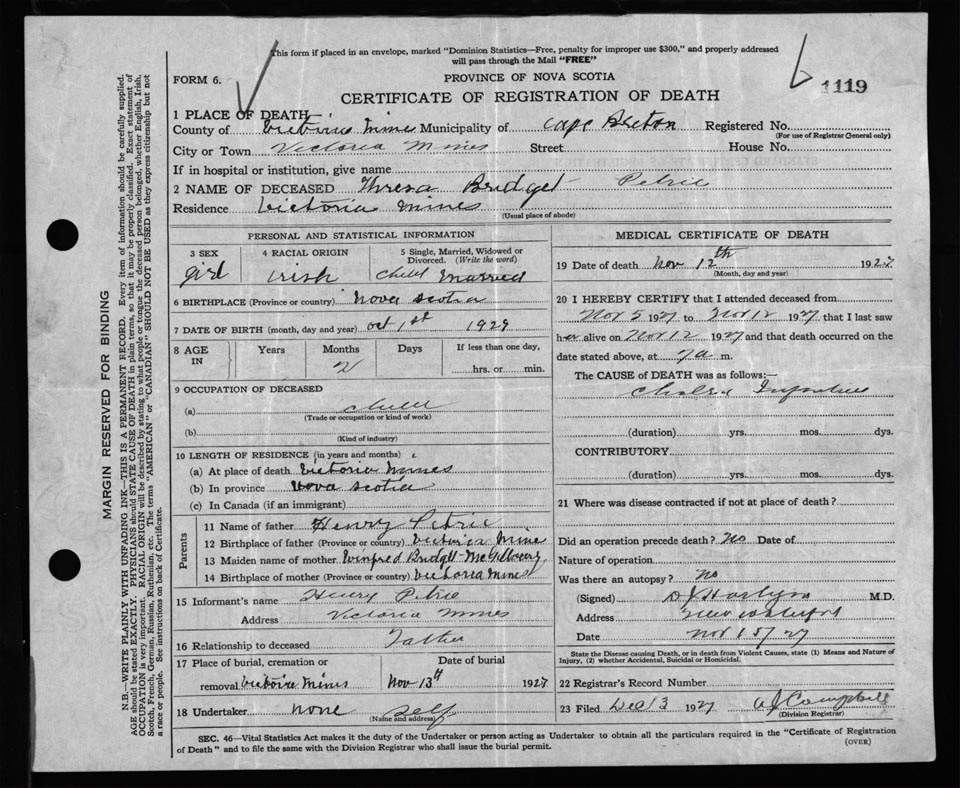 This form if placed in an envelope, marked "Dominion Statistics—Free, penalty for improper use $300," and properly addressed
will pass through the Mail "FREE"
FORM 6.
PROVINCE OF NOVA SCOTIA
1119
CERTIFICATE OF REGISTRATION OF DEATH
1 PLACE OF DEATH
County of Victoria Mine Municipality of Cape Breton Registered No.
(For use of Registrar General only)
City or Town Victoria Mines Street House No.
If in hospital or institution, give name
2 NAME OF DECEASED Thresa Bridget Petrie
Residence Victoria Mines
(Usual place of abode)
PERSONAL AND STATISTICAL INFORMATION
3 SEX girl
4 RACIAL ORIGIN irish
5 Single, Married, Widowed or
Divorced. (Write the word)
child married
6 BIRTHPLACE (Province or country) Nova Scotia
7 DATE OF BIRTH (month, day and year) oct 1st 1927
8 AGE IN
Years Months Days If less than one day,
2 hrs. or min.
9 OCCUPATION OF DECEASED
(a)
(Trade or occupation or kind of work)
(b)
(Kind of industry)
10 LENGTH OF RESIDENCE (in years and months)
(a) At place of death Victoria Mines
(b) In province Nova Scotia
(c) In Canada (if an immigrant)
Parents
11 Name of father Henry Petrie
12 Birthplace of father (Province or country) Victoria Mine
13 Maiden name of mother Winfred Bridgett
14 Birthplace of mother (Province or country) Victoria Mines
15 Informant's name Henry Petrie
Address Victoria Mines
16 Relationship to deceased Father
17 Place of burial, cremation or
removal Victoria Mines
Date of burial
Nov 13th 1927
18 Undertaker none self
(Name and address)
MEDICAL CERTIFICATE OF DEATH
19 Date of death Nov 12th 1927
(Month, day and year)
20 I HEREBY CERTIFY that I attended deceased from
Nov 5 1927 to Nov 12 1927 that I last saw
her alive on Nov 12 1927 and that death occurred on the
date stated above, at 7 a m.
The CAUSE of DEATH was as follows:—
Cholera Infantum
(duration) yrs. mos. dys.
CONTRIBUTORY
(duration) yrs. mos. dys.
21 Where was disease contracted if not at place of death?
Did an operation precede death? No Date of
Nature of operation
Was there an autopsy? no
(Signed) M.D.
Address New Waterford
Date Nov 15/27
State the Disease causing Death, or in death from Violent Causes, state (1) Means and Nature of
Injury, (2) whether Accidental, Suicidal or Homicidal.
22 Registrar's Record Number
23 Filed Dec 13 1927 A J Campbell
(Division Registrar)
SEC. 46—Vital Statistics Act makes it the duty of the Undertaker or person acting as Undertaker to obtain all the particulars required in the "Certificate of Registration
of Death" and to file the same with the Division Registrar who shall issue the burial permit.
(OVER)
MARGIN RESERVED FOR BINDING
N.B.—WRITE PLAINLY WITH UNFADING INK—THIS IS A PERMANENT RECORD. Every item of information should be carefully supplied.
AGE should be stated EXACTLY. PHYSICIANS should STATE CAUSE OF DEATH in plain terms, so that it may be properly classified. Exact statement of
OCCUPATION is very important. RACIAL ORIGIN will be described by stating to what people or tongue the deceased person belonged, whether English, Irish,
Scotch, French, German, Russian, Ruthenian, etc. The terms "AMERICAN" or "CANADIAN" SHOULD NOT BE USED as they express citizenship but not
a race or people. See instructions on back of Certificate.